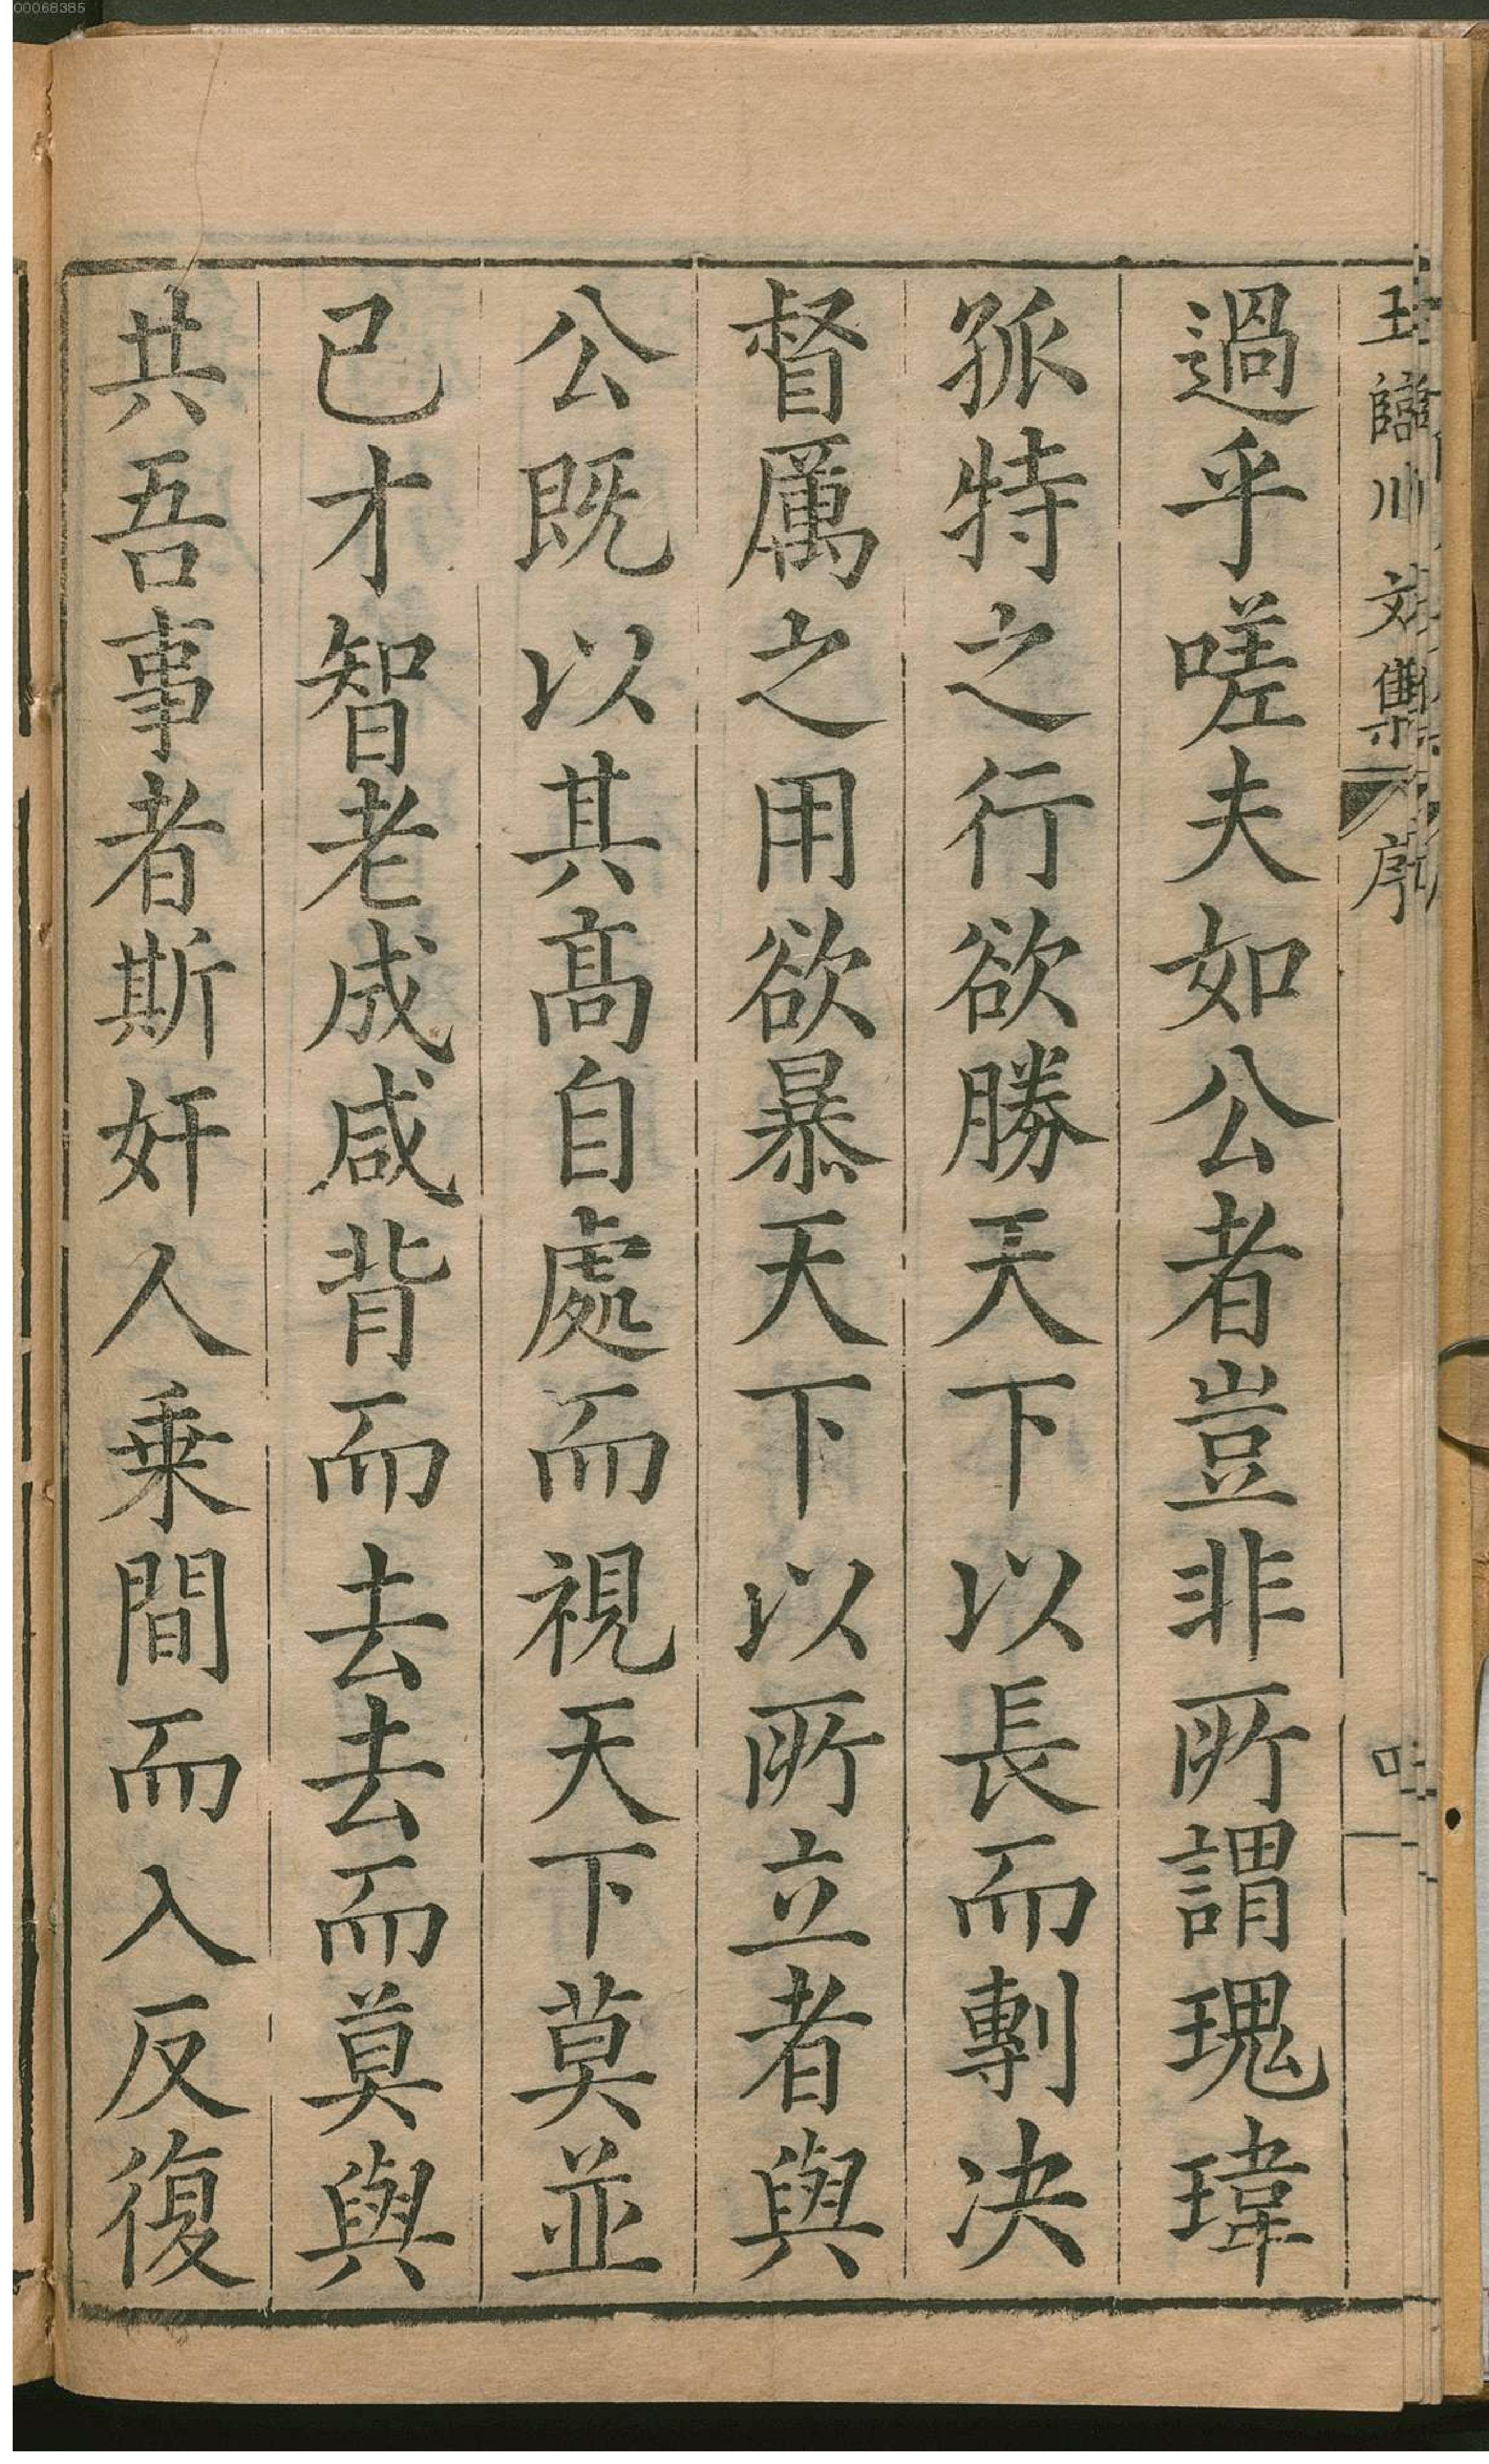 00068385
王臨川文集 序
過乎嗟夫如公者豈非所謂瑰瑋
孤特之行欲勝天下以長而剸決
督厲之用欲暴天下以所立者與
公既以其高自處而視天下莫並
己才智老成咸背而去去而莫與
共吾事者斯奸人乗間而入反復